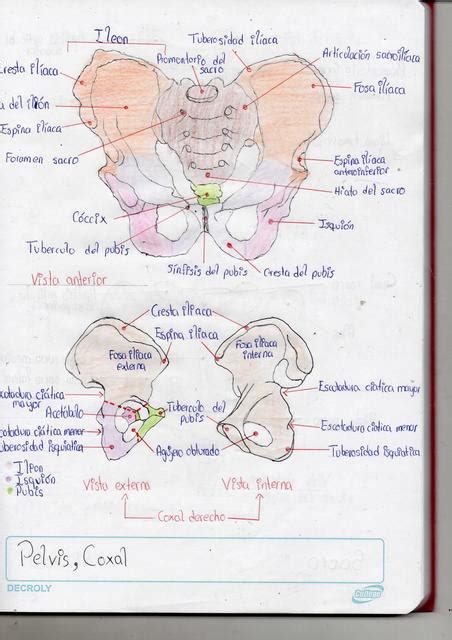 Ileon
Tuberosidad iliaca
Promontorio del
sacro
Articulación sacroiliaca
Cresta iliaca
Fosa iliaca
del ilión
Espina iliaca
Foramen sacro
Espina iliaca
anteroinferior
Hiato del sacro
Cóccix
Isquión
Tuberculo del pubis
Sinfisis del pubis
Cresta del pubis
Vista anterior
Cresta iliaca
Espina iliaca
Fosa iliaca
externa
Fosa iliaca
interna
Escotadura ciática
mayor
Escotadura ciatica mayor
Acetábulo
Tuberculo del
pubis
Escotadura ciática menor
Escotadura ciatica menor
Tuberosidad isquiatica
Agujero obturado
Tuberosidad isquiatica
Ileon
Isquión
Pubis
Vista externa
Vista interna
Coxal derecho
Pelvis, Coxal
DECROLY